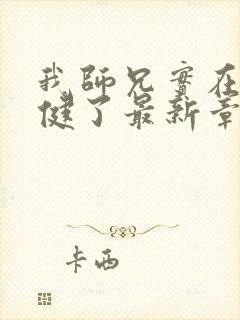 我師兄實在
健了最新章
卡西